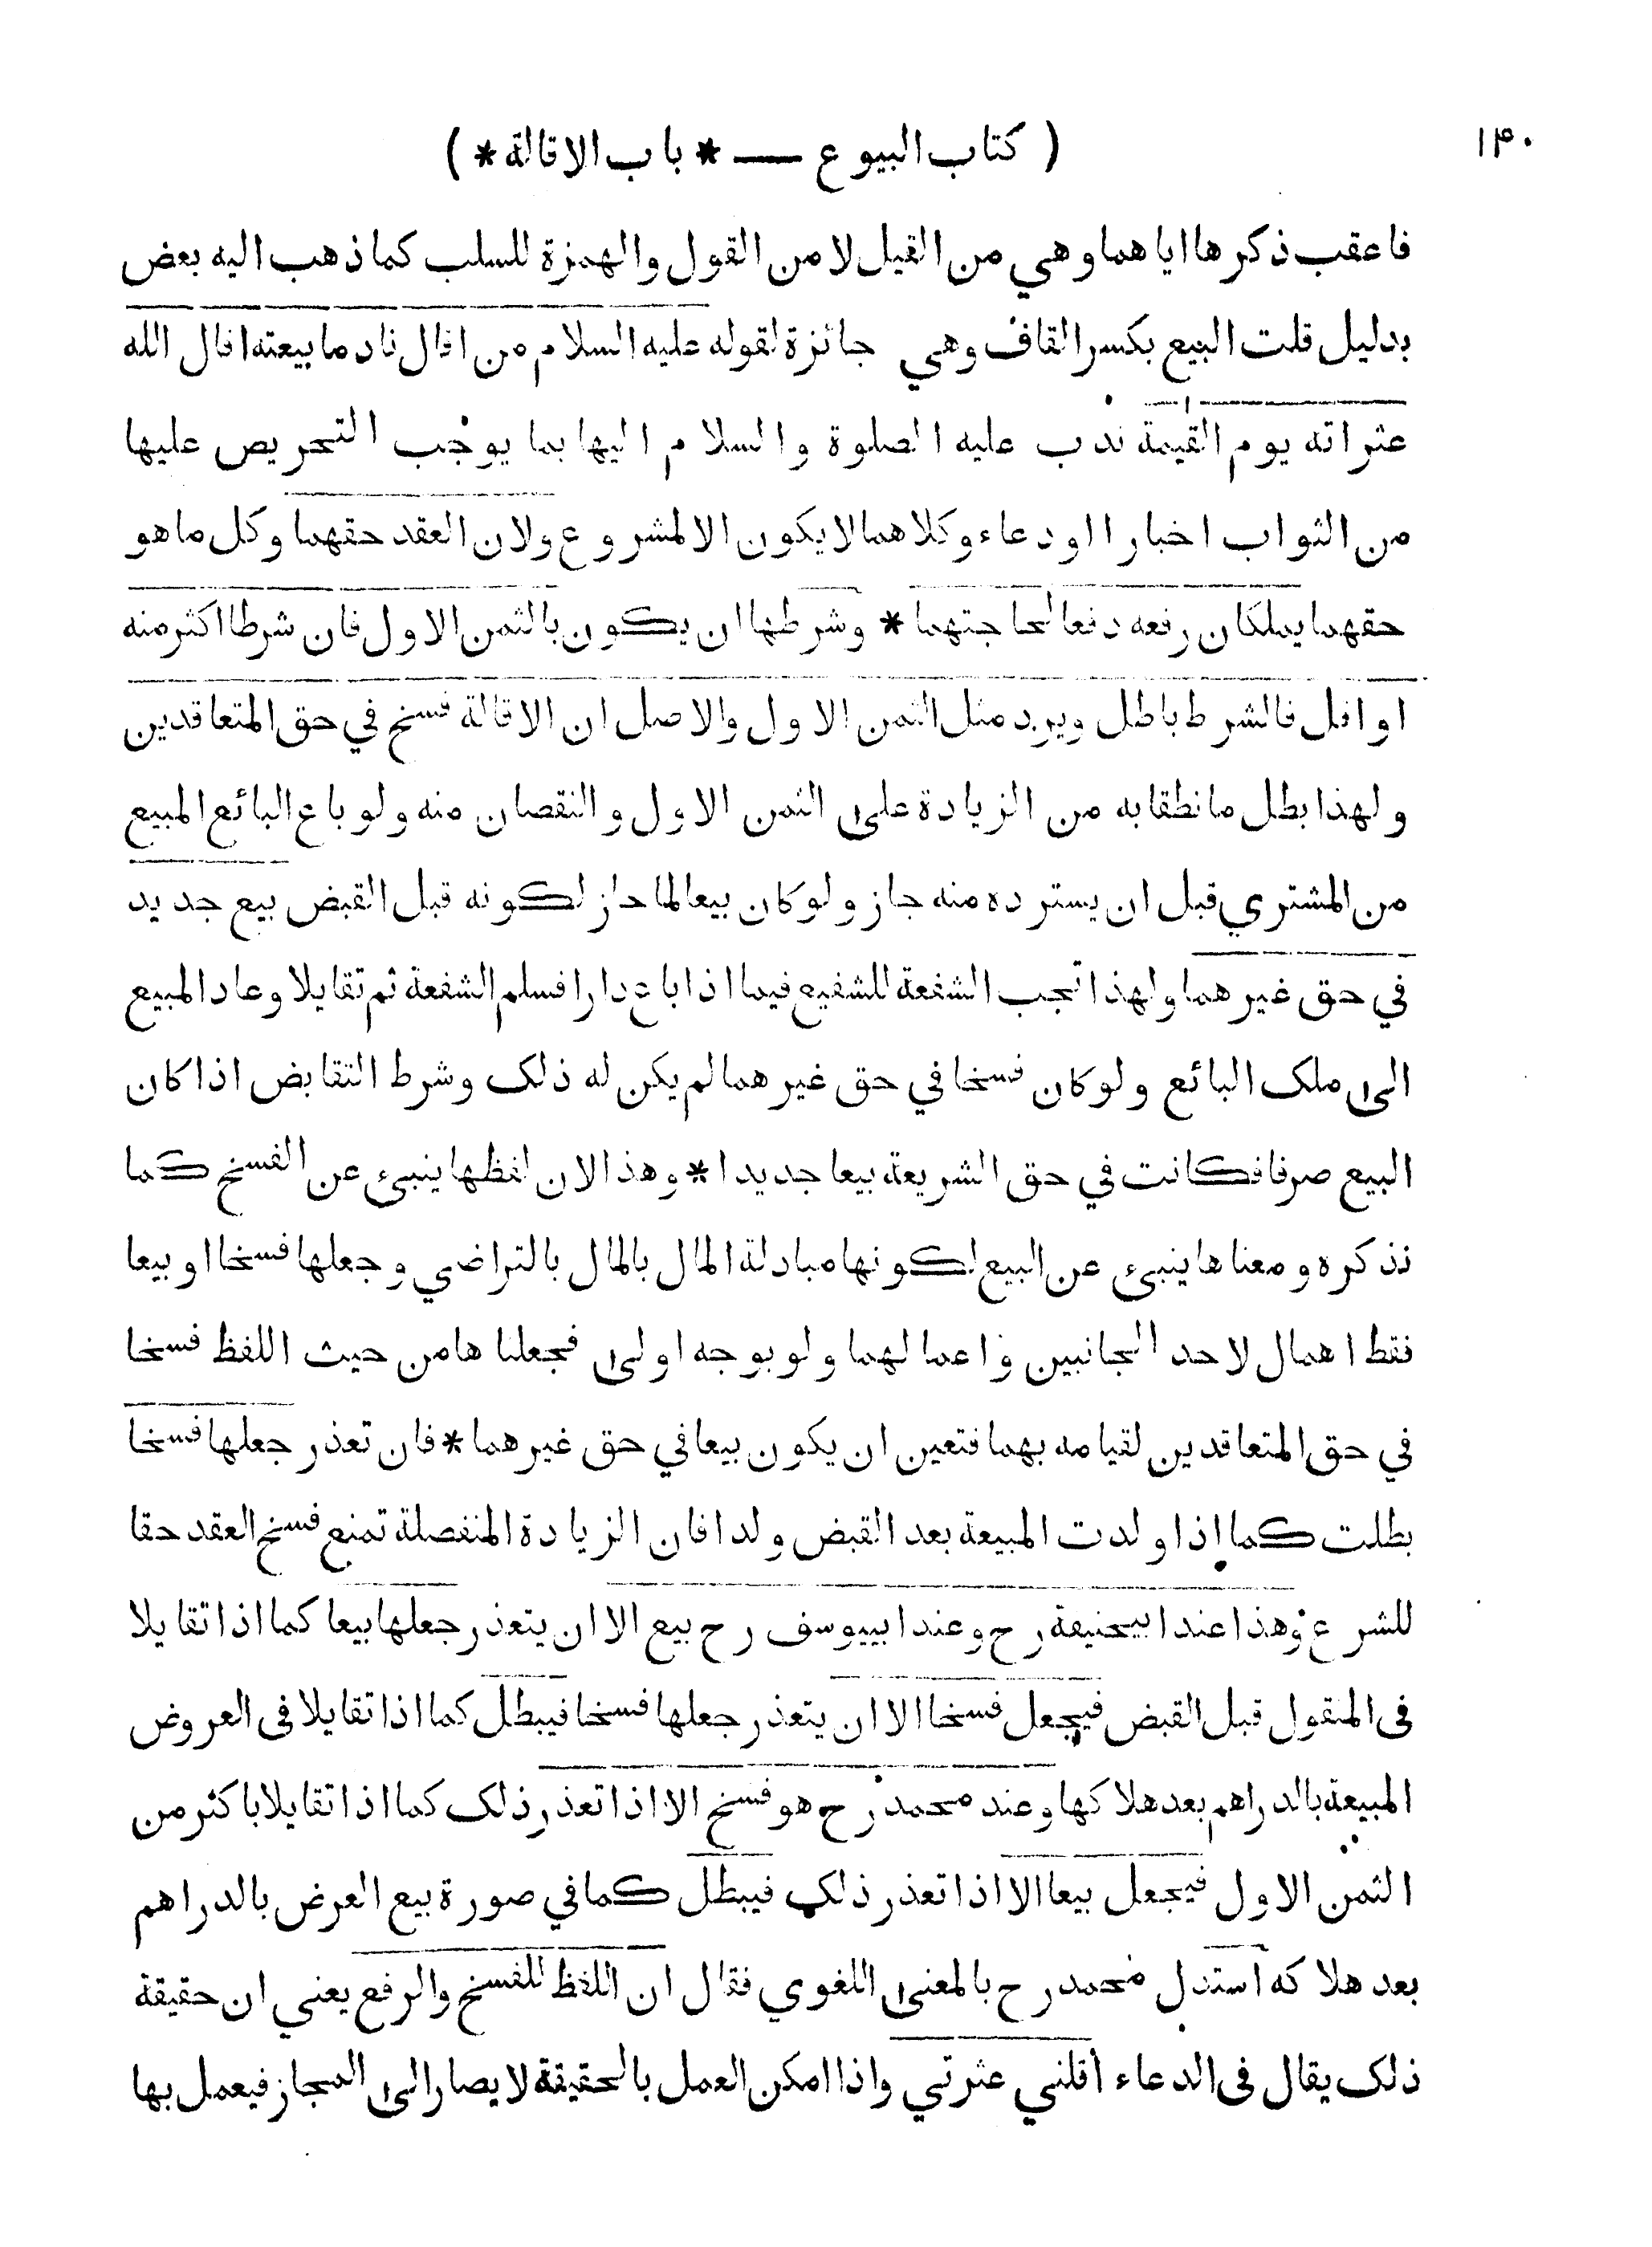 ۱۴۰
( كتاب البيوع — * باب الاقالة * )
فاعقب ذكرها اياهما وهي من القيل لا من القول والهمزة للسلب كما ذهب اليه بعض
بدليل قلت البيع بكسر القاف وهي جائزة لقوله عليه السلام من اقال نادما بيعته اقال الله
عثراته يوم القيمة ندب عليه الصلوة والسلام اليها بما يوجب التحريص عليها
من الثواب اخبارا او دعاء وكلاهما لا يكون الا لمشروع ولان العقد حقهما وكل ما هو
حقهما يملكان رفعه دفعا لحاجتهما * وشرطها ان يكون بالثمن الاول فان شرطا اكثر منه
او اقل فالشرط باطل ويرد مثل الثمن الاول والاصل ان الاقالة فسخ في حق المتعاقدين
ولهذا بطل ما نطقا به من الزيادة على الثمن الاول والنقصان منه ولو باع البائع المبيع
من المشتري قبل ان يسترده منه جاز ولو كان بيعا لما جاز لكونه قبل القبض بيع جديد
في حق غيرهما ولهذا تجب الشفعة للشفيع فيما اذا باع دارا فسلم الشفعة ثم تقايلا وعاد المبيع
الى ملك البائع ولو كان فسخا في حق غيرهما لم يكن له ذلك وشرط التقابض اذا كان
البيع صرفا فكانت في حق الشريعة بيعا جديدا * وهذا لان لفظها ينبئ عن الفسخ كما
نذكره ومعناها ينبئ عن البيع لكونها مبادلة المال بالمال بالتراضي وجعلها فسخا او بيعا
فقط اهمال لاحد الجانبين واعمالهما ولو بوجه اولى فجعلناها من حيث اللفظ فسخا
في حق المتعاقدين لقيامه بهما فتعين ان يكون بيعا في حق غيرهما * فان تعذر جعلها فسخا
بطلت كما اذا ولدت المبيعة بعد القبض ولدا فان الزيادة المنفصلة تمنع فسخ العقد حقا
للشرع وهذا عند ابيحنيفة رح وعند ابييوسف رح بيع الا ان يتعذر جعلها بيعا كما اذا تقايلا
فى المنقول قبل القبض فيجعل فسخا الا ان يتعذر جعلها فسخا فيبطل كما اذا تقايلا فى العروض
المبيعة بالدراهم بعد هلاكها وعند محمد رح هو فسخ الا اذا تعذر ذلك كما اذا تقايلا باكثر من
الثمن الاول فيجعل بيعا الا اذا تعذر ذلك فيبطل كما في صورة بيع العرض بالدراهم
بعد هلاكه استدل محمد رح بالمعنى اللغوي فقال ان اللفظ للفسخ والرفع يعني ان حقيقة
ذلك يقال فى الدعاء اقلني عثرتي واذا امكن العمل بالحقيقة لا يصار الى المجاز فيعمل بها